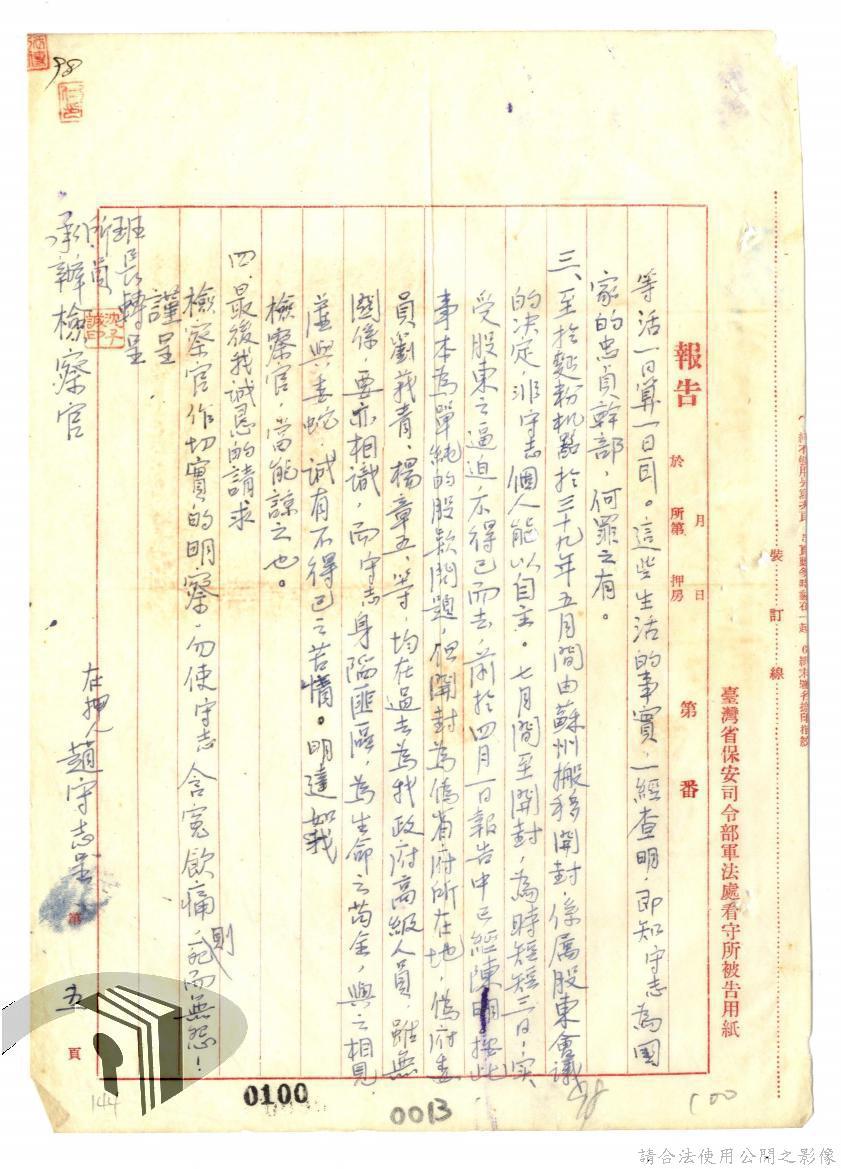 臺灣省保安司令部軍法處看守所被告用紙
裝訂線
報告
於 月 日
所第 押房
第 番
等活一日算一日回。這些生活的事實,一經查明,即知守志為國
家的忠貞幹部,何罪之有。
三、至於麵粉机點於三十九年五月間由蘇州搬移開封,係属股東會議
的决定,非守志個人能以自主。七月間至開封,為時短短三日,实
受股東之逼迫,不得已而去,前於四月一日報告中已經陳明,按此
事本為單純的股款問題,但開封為偽省府所在地,偽府委
員劉莪青、楊章五、等,均在過去為我政府高級人員,雖無
関係,要亦相識,而守志身陷匪區,為生命之苟全,與之相見
虛與委蛇,诚有不得已之苦情。明達如我
檢察官,當能諒之也。
四、最後我誠恳的請求
檢察官作切實的明察,勿使守志含寃飲痛,則死而無怨!
謹呈
班長轉呈
所員
承辦檢察官
沈子誠印
在押人趙守志呈
第五頁
98
98
144
0100
0013
100
請合法使用公開之影像